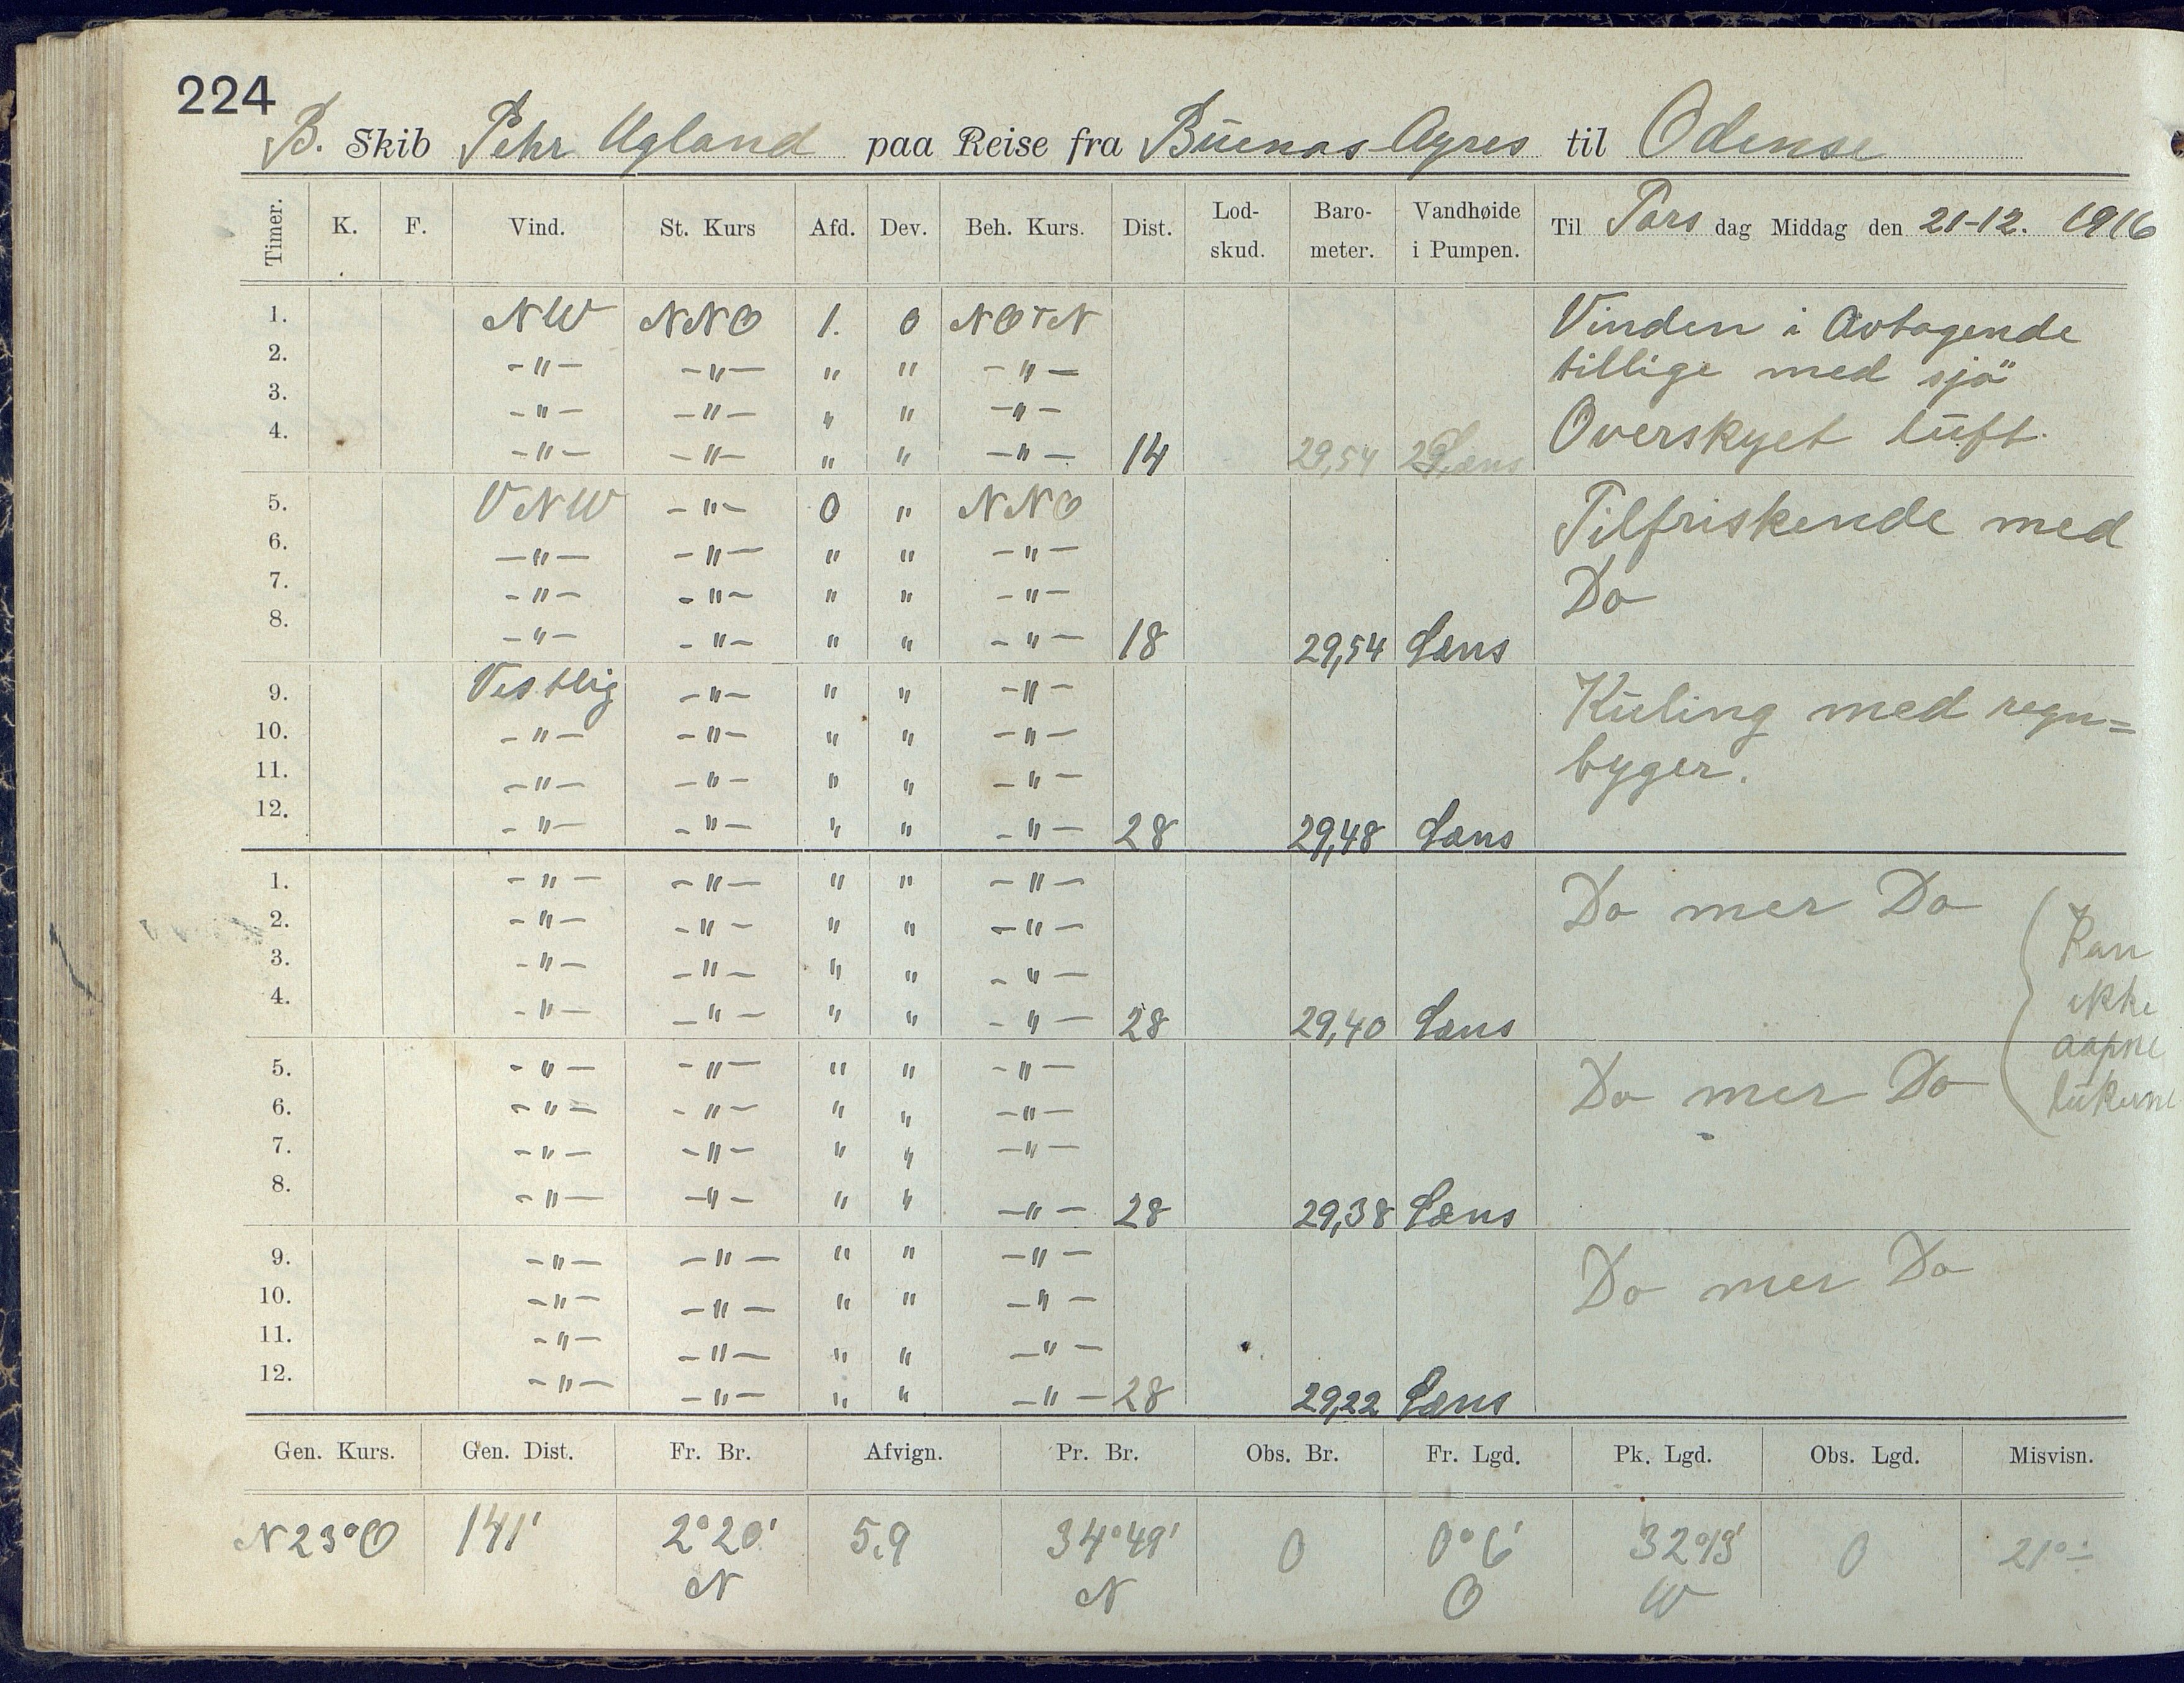 224
B. Skib Pehr Ugland paa Reise fra Buenos Ayres til Odense
Timer. K. F. Vind. St. Kurs Afd. Dev. Beh. Kurs. Dist. Lod-skud. Baro-meter. Vandhøide i Pumpen. Til Tors dag Middag den 21-12. 1916
1. NW NNO 1. 0 NOTN Vinden i Avtagende
2. -"- -"- " " -"- tillige med sjö
3. -"- -"- " " -"- Overskyet luft.
4. -"- -"- " " -"- 14 29,54 Læns
5. VNW -"- 0 " NNO Tilfriskende med
6. -"- -"- " " -"-
7. -"- -"- " " -"- Do
8. -"- -"- " " -"- 18 29,54 Læns
9. Vestlig -"- " " -"- Kuling med regn=
10. -"- -"- " " -"- byger.
11. -"- -"- " " -"-
12. -"- -"- " " -"- 28 29,48 Læns
1. -"- -"- " " -"- Do mer Do
2. -"- -"- " " -"- Kan
3. -"- -"- " " -"- ikke
4. -"- -"- " " -"- 28 29,40 Læns aapne
5. -"- -"- " " -"- Do mer Do lukerne
6. -"- -"- " " -"-
7. -"- -"- " " -"-
8. -"- -"- " " -"- 28 29,38 Læns
9. -"- -"- " " -"- Do mer Do
10. -"- -"- " " -"-
11. -"- -"- " " -"-
12. -"- -"- " " -"- 28 29,22 Læns
Gen. Kurs. Gen. Dist. Fr. Br. Afvign. Pr. Br. Obs. Br. Fr. Lgd. Pk. Lgd. Obs. Lgd. Misvisn.
N23°O 141' 2°20' 5,9 34°49' 0 0°6' 32°13' 0 21°-
N N O W